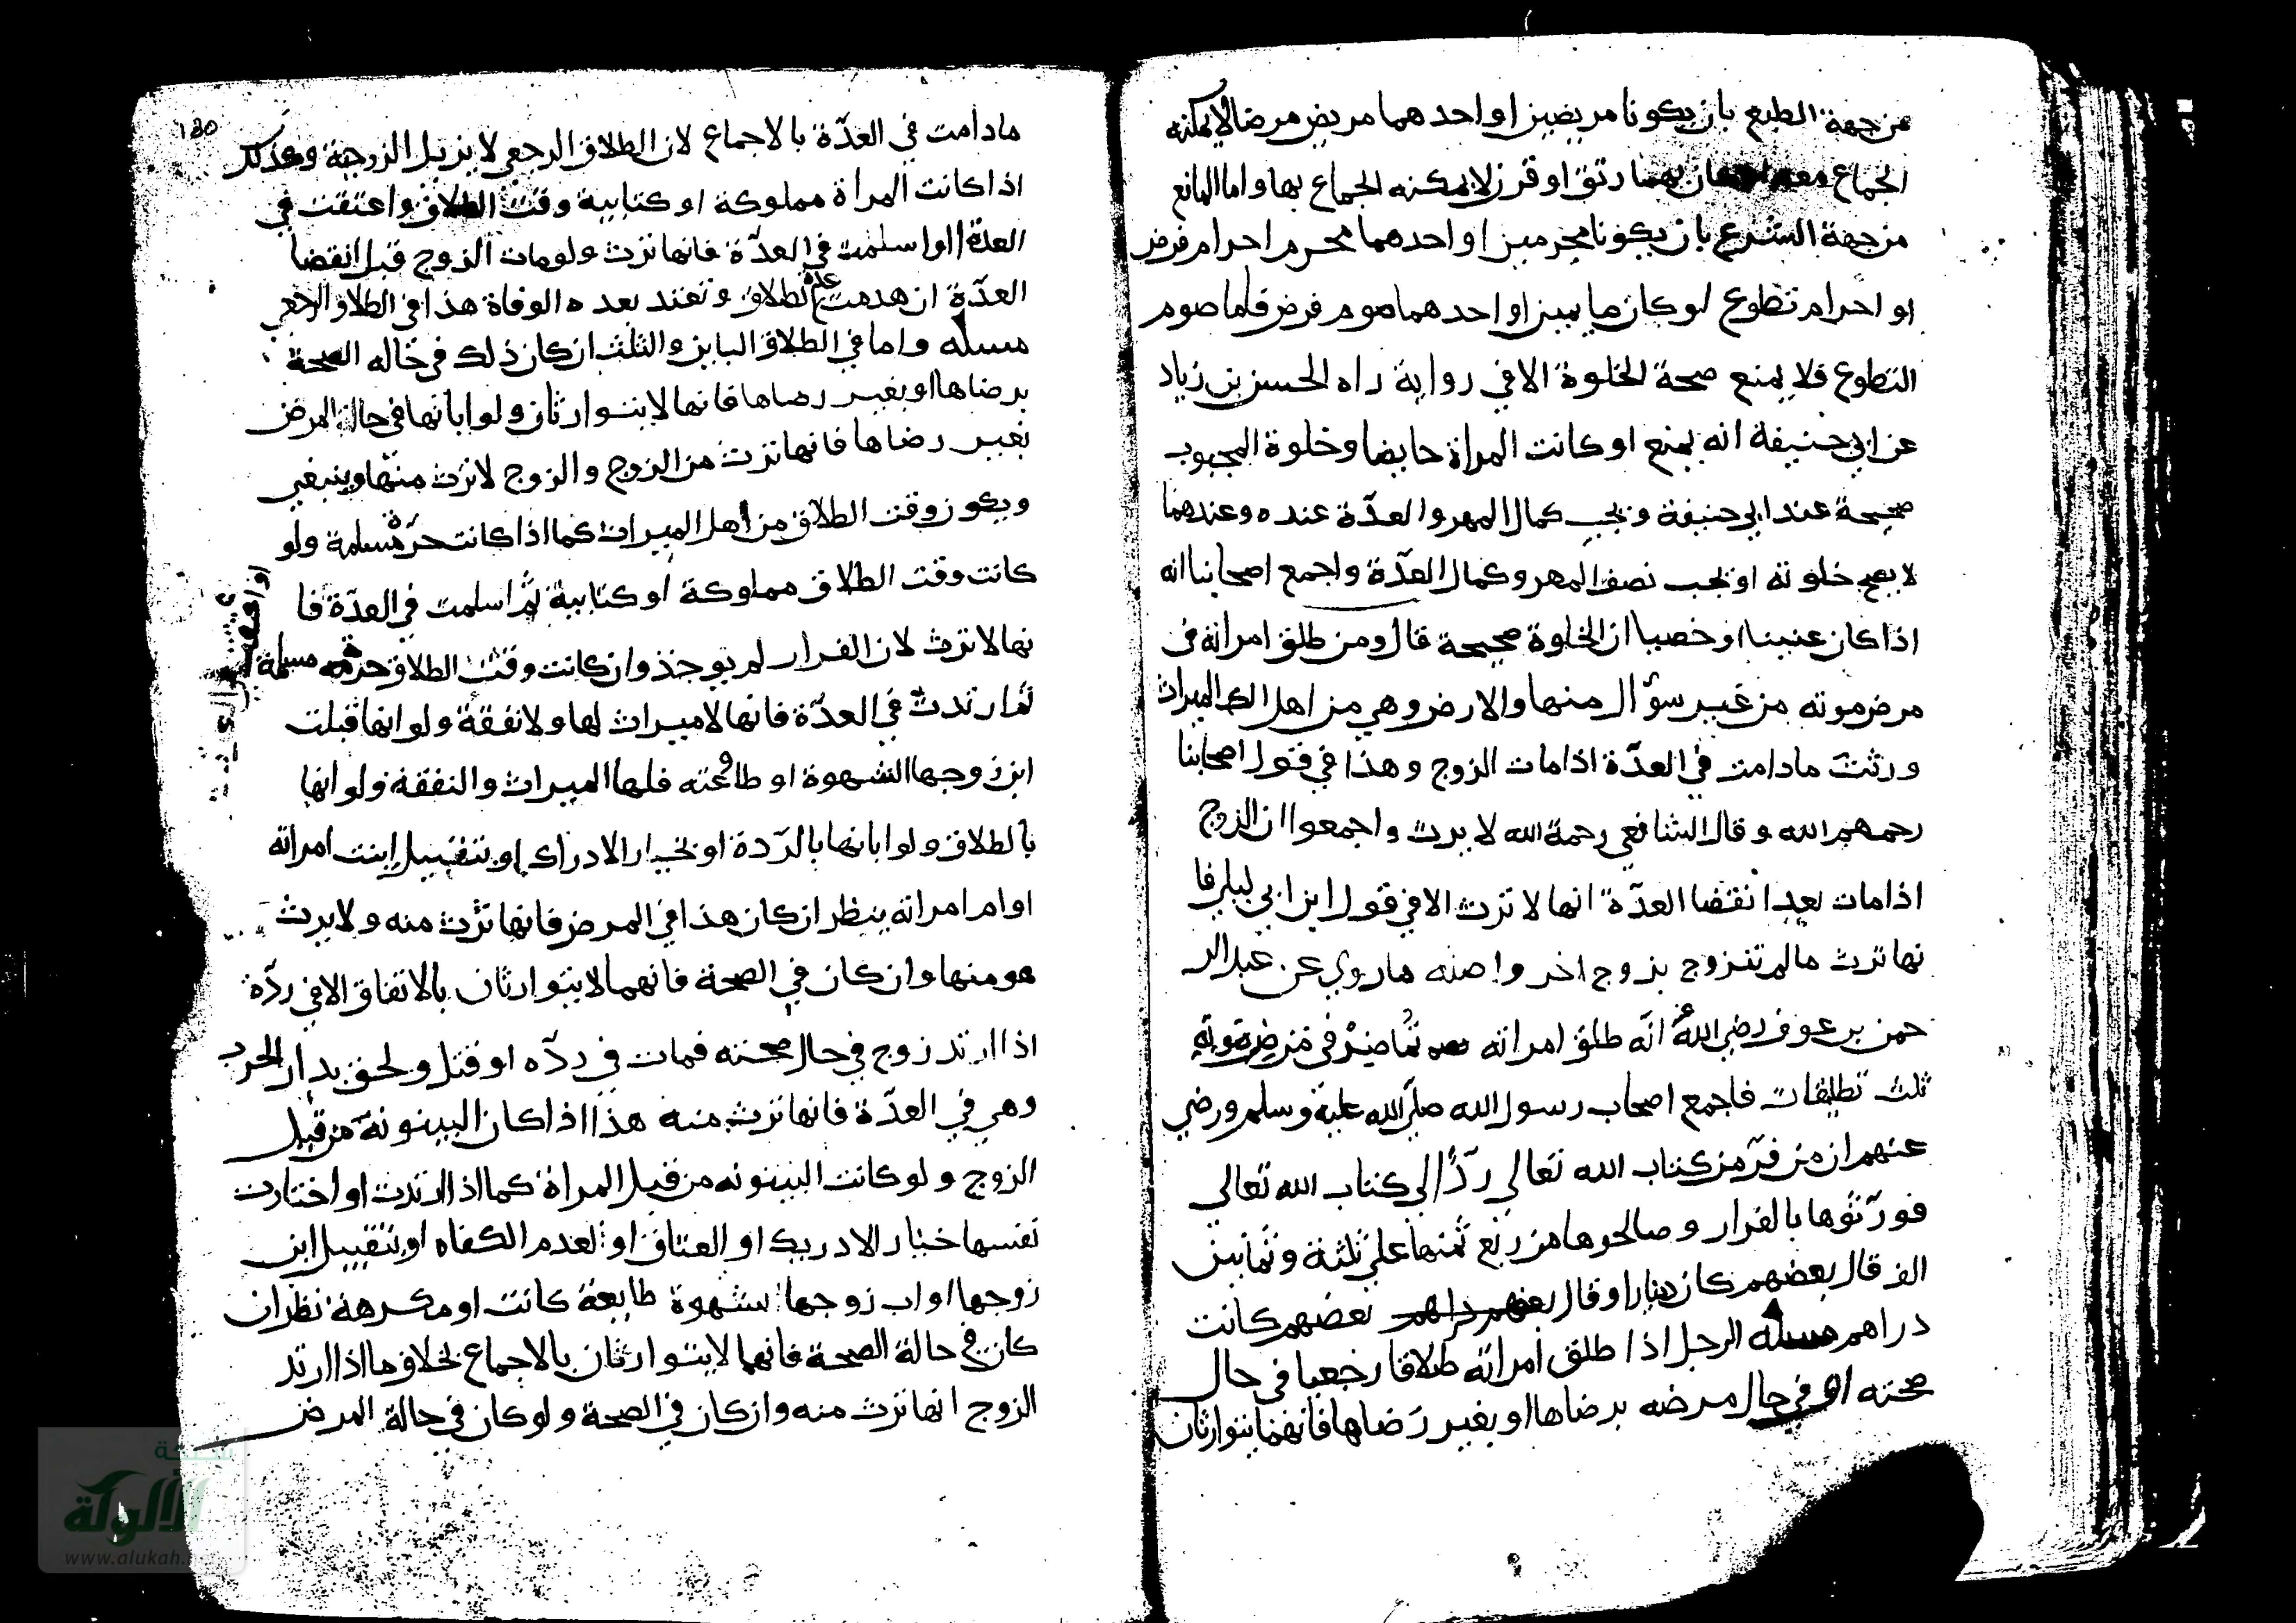 من جهة الطبع بان يكونا مريضين او احدهما مريض مرضا لايمكنه
الجماع معه بها رتق او قرن لايمكنه الجماع بها واما المانع
من جهة الشرع بان يكونا محرمين او احدهما محرم احرام فرض
او احرام تطوع لو كان صايمين او احدهما صوم فرض فاما صوم
التطوع فلا يمنع صحة الخلوة الا في رواية راه الحسن بن زياد
عن ابي حنيفة انه يمنع او كانت المراة حايضا وخلوة المجبوب
صحيحة عند ابي حنيفة ويجب كمال المهر والعدّة عنده وعندهما
لا يصح خلوته او يجب نصف المهر وكمال العدّة واجمع اصحابنا انه
اذا كان عنينا او خصيا ان الخلوة صحيحة قال ومن طلق امراته في
مرض موته من غير سؤال منها والارض وهي من اهل الميراث
ورثت مادامت في العدّة اذا مات الزوج وهذا في قول اصحابنا
رحمهم الله وقال الشافعي رحمة الله لا يرث واجمعوا ان الزوج
اذا مات بعد انقضا العدّة انها لا ترث الا في قول ابن ابي ليلى فا
نها ترث مالم تتزوج بزوج اخر واصله ماروي عن عبد الر
حمن بن عوف رضي الله عنه انّه طلق امراته تماضر في مرض موته
ثلث تطليقات فاجمع اصحاب رسول الله صلّى الله عليه وسلم ورضي
عنهم ان من فرّ من كتاب الله تعالى ردّ الى كتاب الله تعالى
فورّثوها بالفرار وصالحوها من ربع ثمنها على ثلثة وثمانين
الف قال بعضهم كان دينارا وقال بعضهم دراهم بعضهم كانت
دراهم مسئله الرجل اذا طلق امراته طلاقا رجعيا في حال
صحته او في حال مرضه برضاها او بغير رضاها فانهما يتوارثان
130
مادامت في العدّة بالاجماع لان الطلاق الرجعي لا يزيل الزوجية وكذلك
اذا كانت المراة مملوكة او كتابية وقت الطلاق واعتقت في
العدة او اسلمت في العدّة فانها ترث ولو مات الزوج قبل انقضا
العدّة انهدمت عدة الطلاق وتعتد بعده الوفاة هذا في الطلاق الرجعي
مسئله واما في الطلاق الباين والثلث ان كان ذلك في حاله الصحة
برضاها او بغير رضاها فانها لا يتوارثان ولو ابانها في حالة المرض
بغير رضاها فانها ترث من الزوج والزوج لا ترث منها وينبغي
ويكون وقت الطلاق من اهل الميراث كما اذا كانت حرّة مسلمة ولو
كانت وقت الطلاق مملوكة او كتابية ثم اسلمت في العدّة فا
نها لا ترث لان الفرار لم يوجد وان كانت وقت الطلاق حرة مسلمة
ثم ارتدت في العدّة فانها لا ميراث لها ولا نفقة ولو انها قبلت
ابن زوجها الشهوة او طاوعته فلها الميراث والنفقة ولو انها
بالطلاق ولو ابانها بالردّة او بخيار الادراك او بتقبيل ابنت امراته
او ام امراته ينظر ان كان هذا في المرض فانها ترث منه ولا يرث
هو منها وان كان في الصحة فانهما لا يتوارثان بالاتفاق الا في ردّة
اذا ارتد زوج في حال صحته فمات في ردّه او قتل ولحق بدار الحرب
وهي في العدّة فانها ترث منه هذا اذا كان البينونة من قبل
الزوج ولو كانت البينونه من قبل المراة كما اذا ارتدت او اختارت
نفسها خيار الادريك او العتاق او لعدم الكفاه او بتقبيل ابن
زوجها او اب زوجها بشهوة طايعة كانت او مكرهة نظر ان
كان في حالة الصحة فانهما لا يتوارثان بالاجماع بخلاف ما اذا ارتد
الزوج انها ترث منه وان كان في الصحة ولو كان في حالة المرض
شبكة
الألوكة